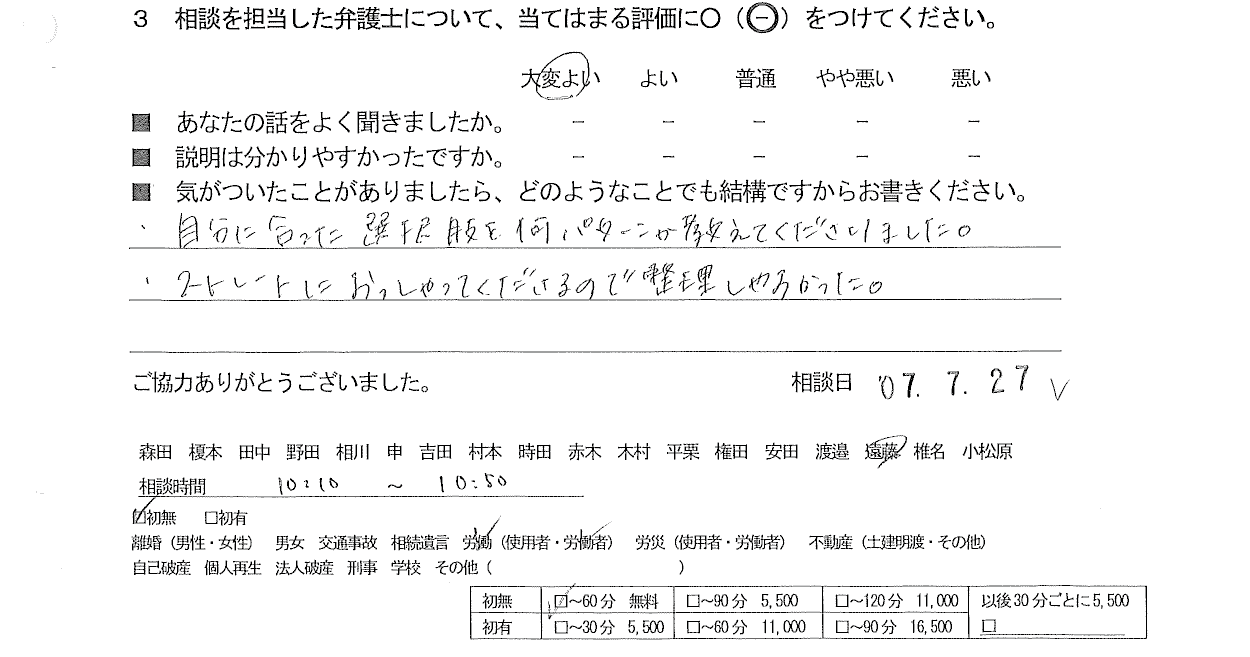 3　相談を担当した弁護士について、当てはまる評価に○（㊀）をつけてください。
大変よい　よい　普通　やや悪い　悪い
■　あなたの話をよく聞きましたか。　－　－　－　－　－
■　説明は分かりやすかったですか。　－　－　－　－　－
■　気がついたことがありましたら、どのようなことでも結構ですからお書きください。
・自分に合った選択肢を何パターンか教えてくださいました。
・ストレートにおっしゃってくださるので整理しやすかった。
ご協力ありがとうございました。　相談日 '07. 7. 27
森田　榎本　田中　野田　相川　申　吉田　村本　時田　赤木　木村　平栗　権田　安田　渡邉　遠藤　椎名　小松原
相談時間　10:10　～　10:50
☑初無　□初有
離婚（男性・女性）　男女　交通事故　相続遺言　労働（使用者・労働者）　労災（使用者・労働者）　不動産（土建明渡・その他）
自己破産　個人再生　法人破産　刑事　学校　その他（　）
初無　☑～60分　無料　□～90分　5,500　□～120分　11,000　以後30分ごとに5,500
初有　□～30分　5,500　□～60分　11,000　□～90分　16,500　□